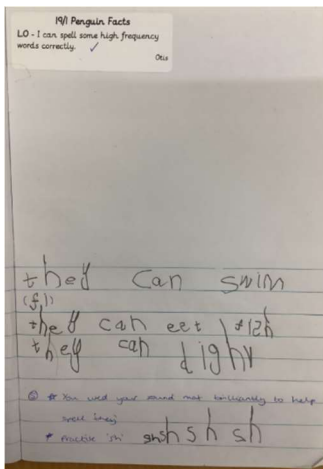 19/1 Penguin Facts
LO - I can spell some high frequency
words correctly. ✓
Otis
they can swim
they can eet fish
they can
☺ * You used your sound mat brilliantly to help
spell 'they'
* Practise 'sh' sh sh sh sh